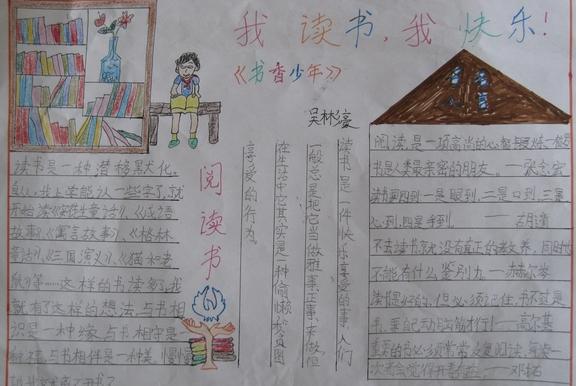 我读书,我快乐!
《书香少年》
吴林濠
读书是一种潜移默化。
自从我上学能认一些字了,就
开始读《安徒生童话》、《成语
故事》、《寓言故事》、《格林
童话》、《三国演义》、《猫和老
鼠》等……这样的书读多了,我
就有了这样的想法,与书相
识是一种缘,与书相守是
与书相伴是一种美,慢慢
阅读书
读书是一件快乐享受的事,人们
一般总是把它当做雅事、正事,
在生活中它其实是一种偷懒、贪图
享受的行为。
阅读,是一项高尚的心智锻炼
书是人类最亲密的朋友。
读书有四到:一是眼到,二是口到,三是
心到,四是手到。——胡适
不去读书就没有真正的教养,同时也
不能有什么鉴别力——赫尔岑
读书是好的,但必须记住,书不过是
书,要自己动脑筋才行!——高尔基
重要的书必须常常反复阅读,每读一
次都会觉得开卷有益。——邓拓